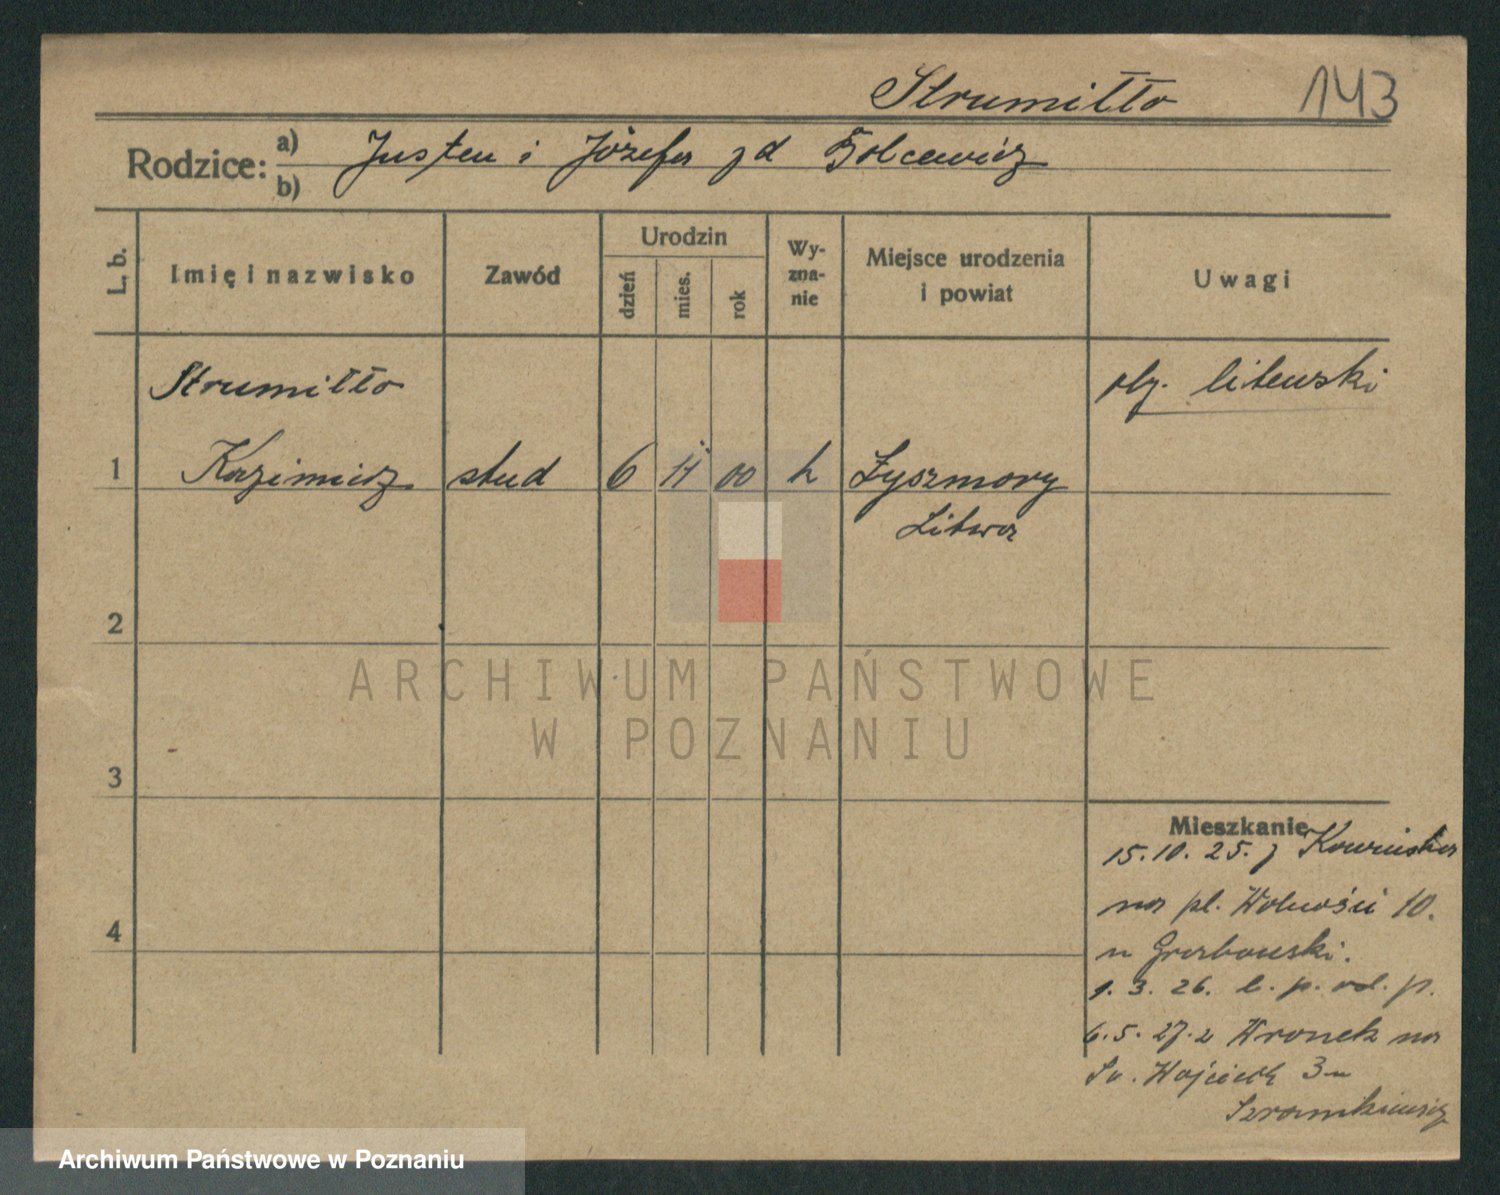 Strumiłło 143
Rodzice: a) Justen i Józefa z d
b)
L. b. Imię i nazwisko Zawód Urodzin dzień mies. rok Wyznanie Miejsce urodzenia i powiat Uwagi
Strumiłło oby. litewski
1 Kazimierz stud 6 11 00 k Żyszmory
Litwa
2
3
4
Mieszkanie
15.10.25. z
na pl. Wolności 10.
u Grabowski.
1.3.26. od. p.
6.5.27. z Wronek na
Św. Wojciech 3 u
ARCHIWUM PAŃSTWOWE
W POZNANIU
Archiwum Państwowe w Poznaniu